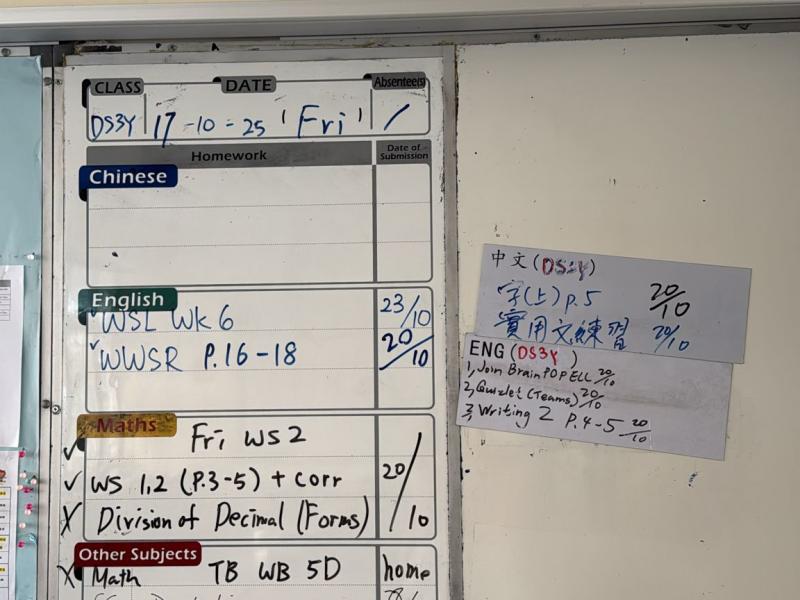 CLASS DATE Absentee(s)
DS3Y 17-10-25 'Fri' /
Homework Date of Submission
Chinese
English
✓WSL WK6 23/10
✓WWSR P.16-18 20/10
Maths
✓ Fri WS2
✓ WS 1,2 (P.3-5) + Corr 20/10
X Division of Decimal (Forms)
Other Subjects
X Math TB WB 5D home
中文(DS3Y)
字(上)p.5 20/10
實用文練習 20/10
ENG(DS3Y)
1, Join BrainPOP ELL 20/10
2, Quizlet (Teams) 20/10
3, Writing 2 P.4-5 20/10